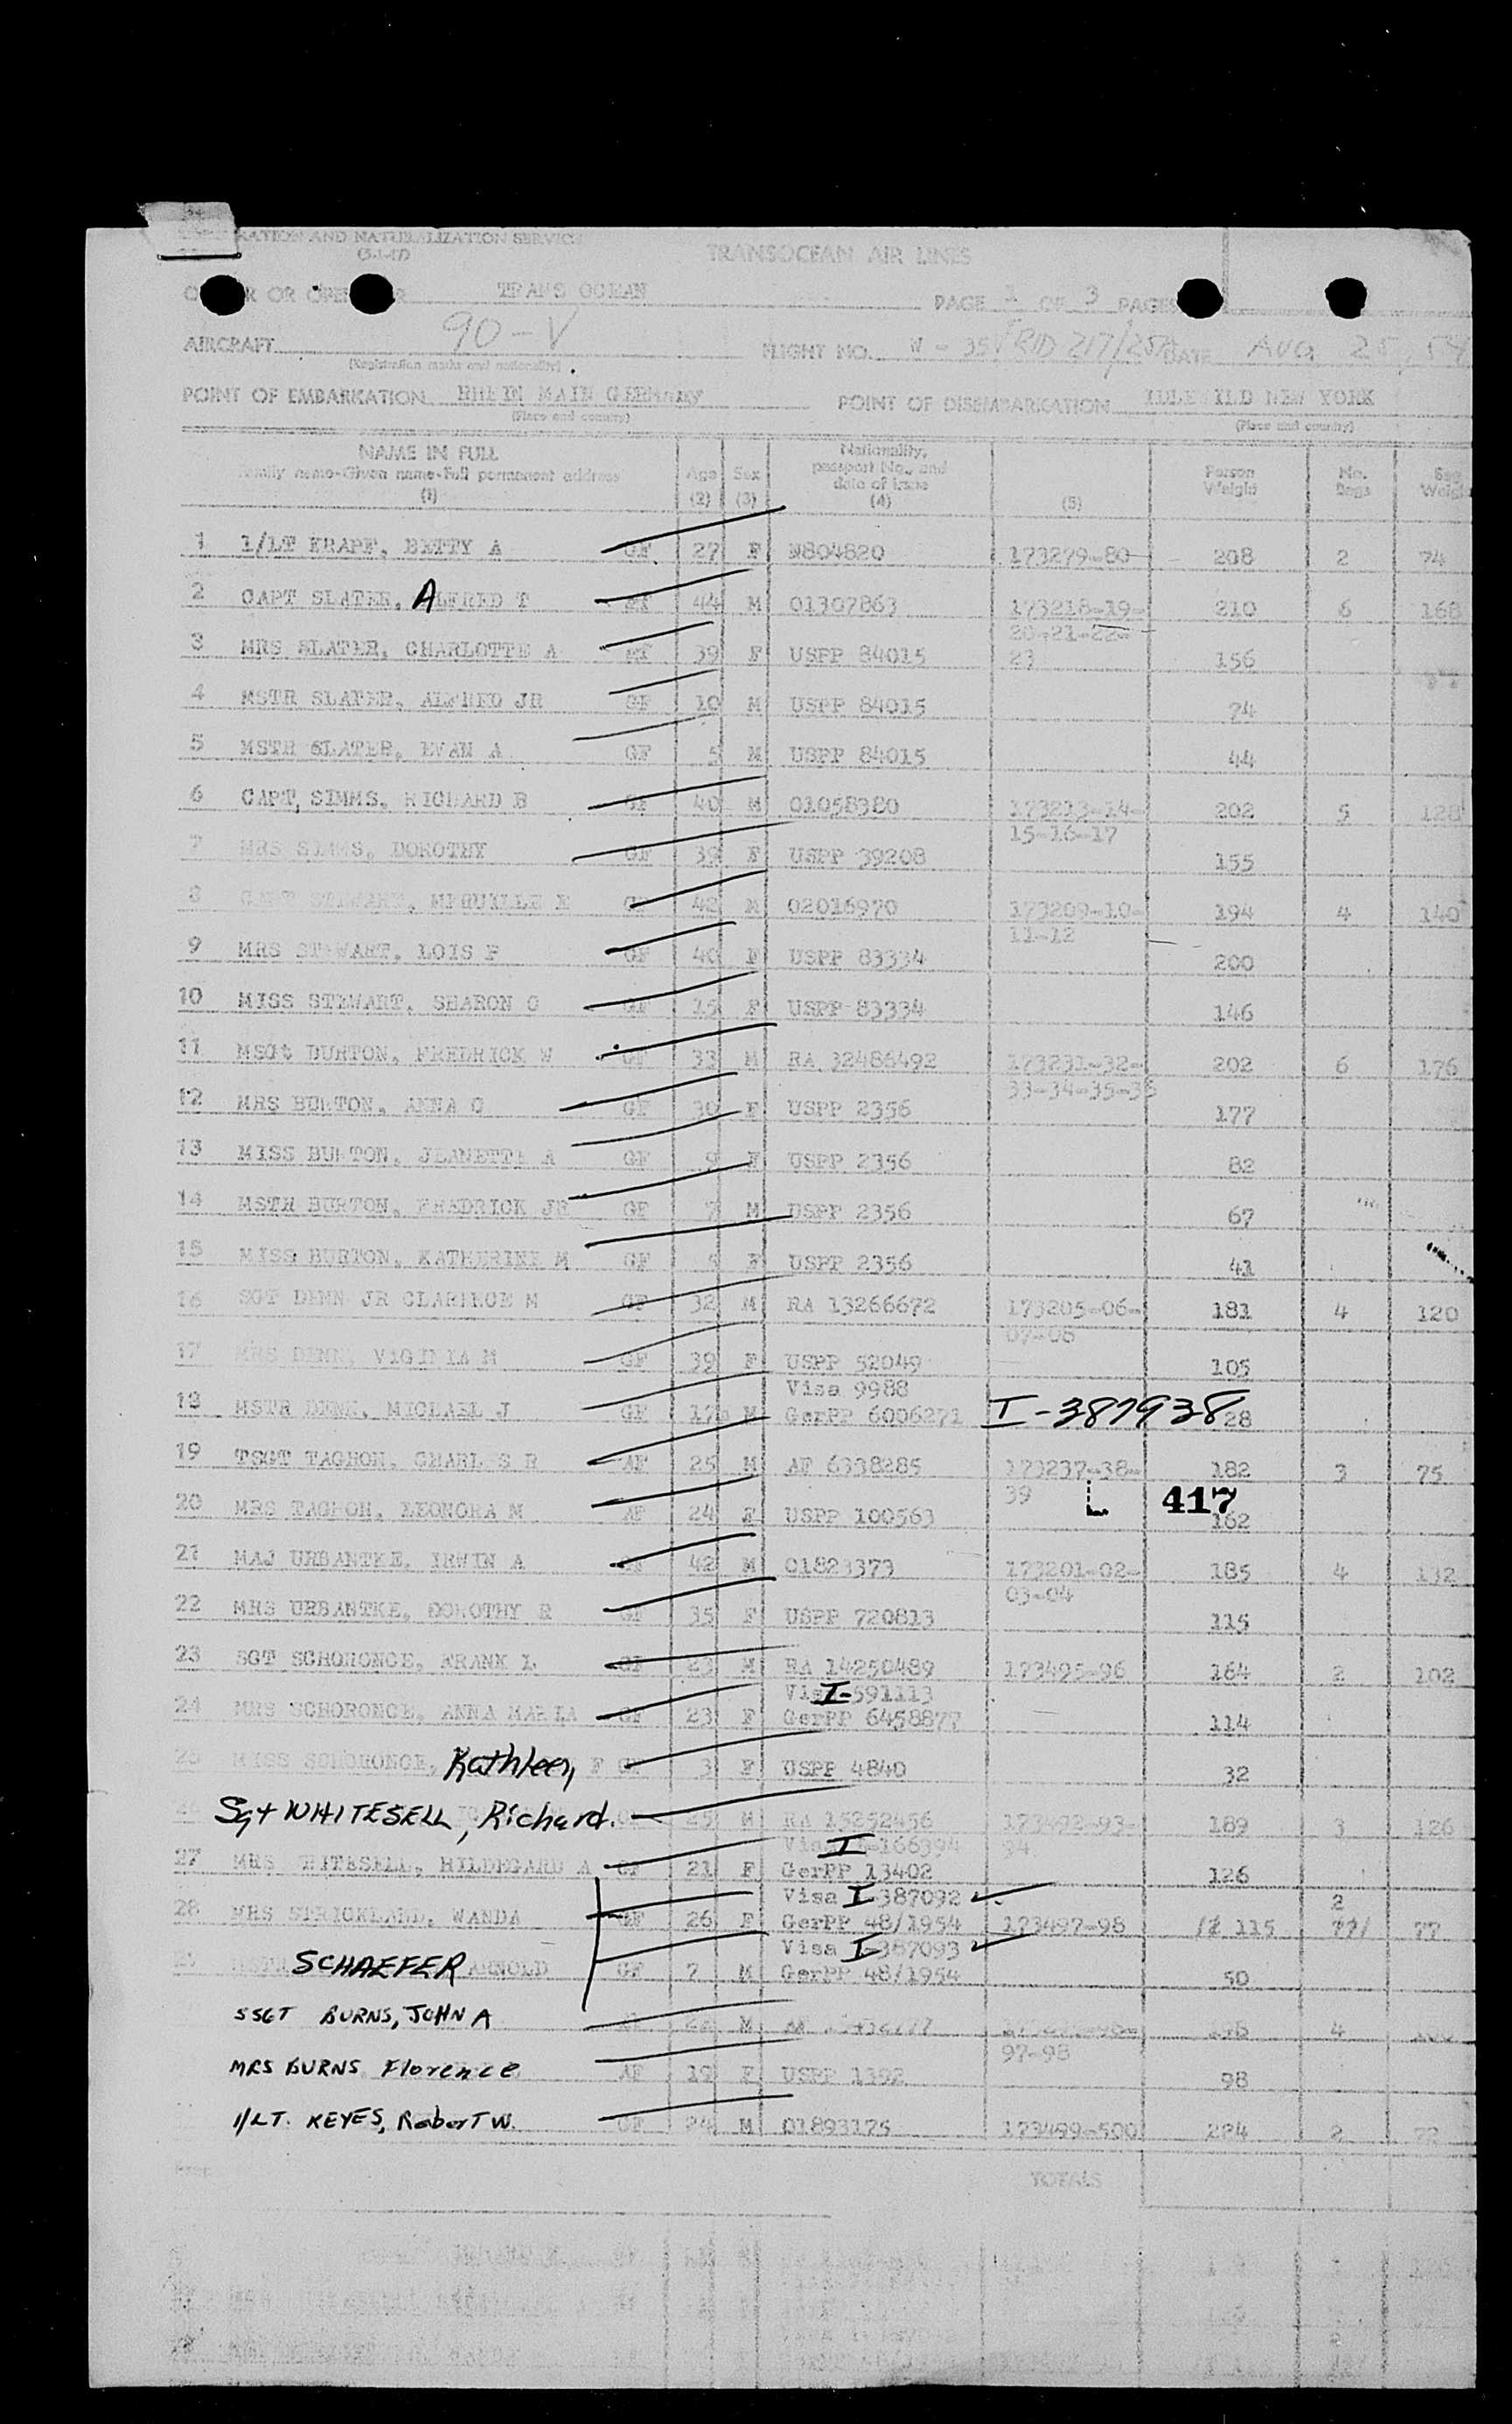 TRANSOCEAN AIR LINES
IMMIGRATION AND NATURALIZATION SERVICE
(5-1-47)
TRANS OCEAN PAGE 1 OF 3 PAGES
AIRCRAFT 90-V FLIGHT NO. W-35 DATE AUG 25, 54
(Registration marks and nationality)
POINT OF EMBARKATION RHEIN MAIN GERMANY POINT OF DISEMBARKATION IDLEWILD NEW YORK
(Place and country) (Place and country)
NAME IN FULL Age Sex Nationality, passport No., and date of issue Person Weight No. Bags Bag Weight
Family name-Given name-Full permanent address
(1) (2) (3) (4) (5)
1 1/LT KRAPF, BETTY A GF 27 F N804820 173279-80 208 2 74
2 CAPT SLATER, ALFRED T 44 M 01307863 173218-19- 210 6 168
20-21-22-
3 MRS SLATER, CHARLOTTE A 39 F USPP 84015 23 156
4 MSTR SLATER, ALFRED JR GF 10 M USPP 84015 74
5 MSTR SLATER, EVAN A GF 5 M USPP 84015 44
6 CAPT, SIMMS, RICHARD B GF 40 M 01058380 173213-14- 202 5 128
15-16-17
7 MRS SIMMS, DOROTHY GF 39 F USPP 39208 155
8 CAPT STEWART, E GF 42 M 02016970 173209-10- 194 4 140
11-12
9 MRS STEWART, LOIS F GF 40 F USPP 83334 200
10 MISS STEWART, SHARON C GF 15 F USPP 83334 146
11 MSGt BURTON, FREDRICK W GF 33 M RA 32486492 173231-32- 202 6 176
33-34-35-36
12 MRS BURTON, ANNA C GF 30 F USPP 2356 177
13 MISS BURTON, JEANETTE A GF 9 F USPP 2356 82
14 MSTR BURTON, FREDRICK JR GF 7 M USPP 2356 67
15 MISS BURTON, KATHERINE M GF 5 F USPP 2356 41
16 SGT DENN JR CLARENCE M GF 32 M RA 13266672 173205-06- 181 4 120
07-08
17 MRS DENN, VIGINIA M GF 39 F USPP 52049 105
Visa 9988
18 MSTR DENN, MICHAEL J GF 17 M GerPP 6006271 I-387938 28
19 TSGT TAGHON, CHARLES R AF 25 M AF 6338285 173237-38- 182 3 75
39 L 417
20 MRS TAGHON, LEONORA M AF 24 F USPP 100563 162
21 MAJ URBANTKE, IRWIN A GF 42 M 01823373 173201-02- 185 4 132
03-04
22 MRS URBANTKE, DOROTHY R GF 35 F USPP 720813 115
23 SGT SCHORONCE, FRANK L GF 23 M RA 14250489 173495-96 164 2 102
Visa I-591113
24 MRS SCHORONCE, ANNA MARIA GF 23 F GerPP 6458877 114
25 MISS SCHORONCE, Kathleen F GF 3 F USPP 4840 32
Sgt WHITESELL, Richard. 25 M RA 15252456 173492-93- 189 3 126
Visa I-166394 94
27 MRS WHITESELL, HILDEGARD A GF 21 F GerPP 13402 126
Visa I-387092 2
28 MRS STRICKLAND, WANDA GF 26 F GerPP 48/1954 173497-98 115 77
Visa I-387093
SCHAEFER ARNOLD GF 7 M GerPP 48/1954 50
SSGT BURNS, JOHN A M AF 4
97-98
MRS BURNS Florence AF 19 F USPP 1392 98
1/LT. KEYES, Robert W. GF 24 M 01893175 173499-500 224 2 72
TOTALS